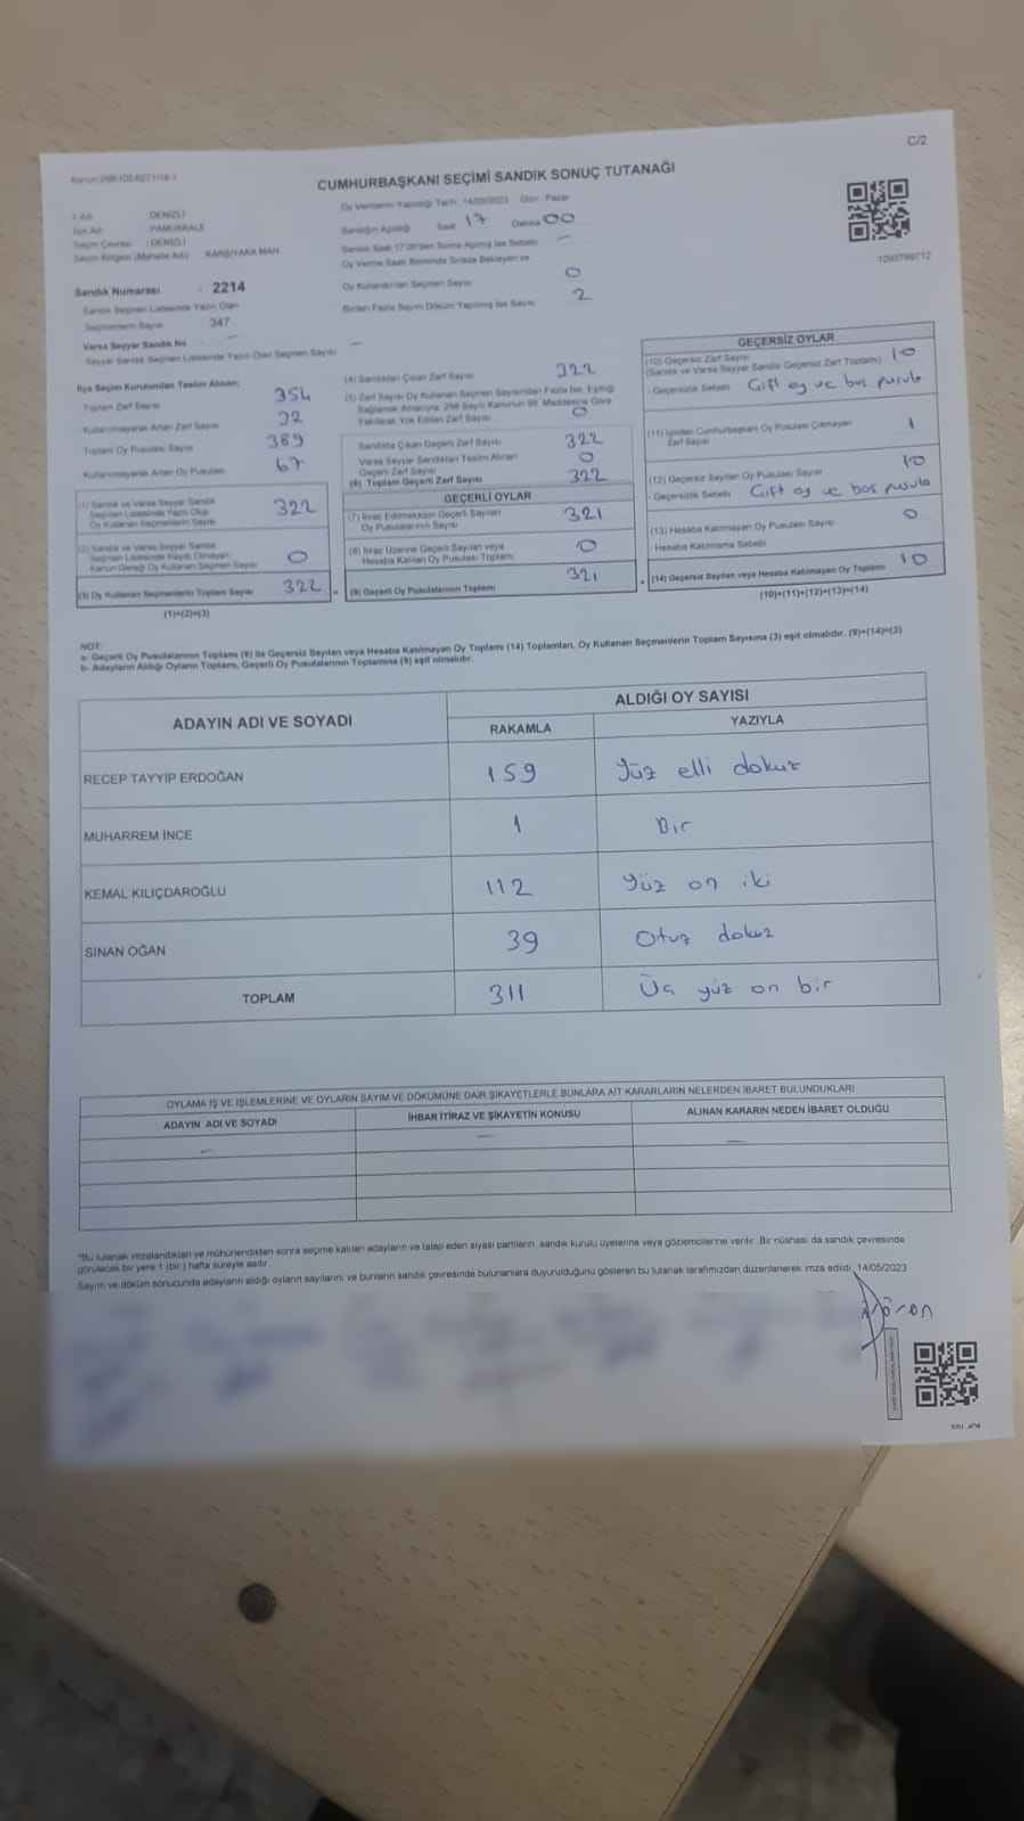 C/2
CUMHURBAŞKANI SEÇİMİ SANDIK SONUÇ TUTANAĞI
İli Adı DENİZLİ
İlçe Adı PAMUKKALE
Seçim Çevresi : DENİZLİ
KARŞIYAKA MAH.
Oy Verilmenin Yapıldığı Tarih: 14/05/2023 Gün: Pazar
Sandığın Açıldığı Saat 17 Dakika 00
Oy Kullandırılan Seçmen Sayısı 0
Birden Fazla Sayım Döküm Yapılmış İse Sayısı 2
Sandık Numarası 2214
Sandık Seçmen Listesinde Yazılı Olan
Seçmenlerin Sayısı 347
Varsa Seyyar Sandık No
Seyyar Sandık Seçmen Listesinde Yazılı Olan Seçmen Sayısı
İlçe Seçim Kurulundan Teslim Alınan;
Toplam Zarf Sayısı 354
Kullanılmayarak Artan Zarf Sayısı 32
Toplam Oy Pusulası Sayısı 389
Kullanılmayarak Artan Oy Pusulası 67
(1) Sandık ve Varsa Seyyar Sandık
Seçmen Listesinde Yazılı Olup
Oy Kullanan Seçmenlerin Sayısı 322
(2) Sandık ve Varsa Seyyar Sandık
Seçmen Listesinde Kayıtlı Olmayan
Kanun Gereği Oy Kullanan Seçmen Sayısı 0
(3) Oy Kullanan Seçmenlerin Toplam Sayısı 322
(1)+(2)=(3)
(4) Sandıktan Çıkan Zarf Sayısı 322
(5) Zarf Sayısı Oy Kullanan Seçmen Sayısından Fazla İse, Eşitliği
Sağlamak Amacıyla, 298 Sayılı Kanunun 98. Maddesine Göre
Yakılarak Yok Edilen Zarf Sayısı 0
Sandıkta Çıkan Geçerli Zarf Sayısı 322
Varsa Seyyar Sandıktan Teslim Alınan
Geçerli Zarf Sayısı 0
(6) Toplam Geçerli Zarf Sayısı 322
GEÇERLİ OYLAR
(7) İtiraz Edilmeksizin Geçerli Sayılan
Oy Pusulalarının Sayısı 321
(8) İtiraz Üzerine Geçerli Sayılan veya
Hesaba Katılan Oy Pusulası Toplamı 0
(9) Geçerli Oy Pusulalarının Toplamı 321
GEÇERSİZ OYLAR
(10) Geçersiz Zarf Sayısı
(Sandık ve Varsa Seyyar Sandık Geçersiz Zarf Toplamı) 10
Geçersizlik Sebebi Çift oy ve boş pusula
(11) İçinden Cumhurbaşkanı Oy Pusulası Çıkmayan
Zarf Sayısı 1
(12) Geçersiz Sayılan Oy Pusulası Sayısı 10
Geçersizlik Sebebi Çift oy ve boş pusula
(13) Hesaba Katılmayan Oy Pusulası Sayısı 0
Hesaba Katılmama Sebebi
(14) Geçersiz Sayılan veya Hesaba Katılmayan Oy Toplamı 10
(10)+(11)+(12)+(13)=(14)
NOT:
a- Geçerli Oy Pusulalarının Toplamı (9) ile Geçersiz Sayılan veya Hesaba Katılmayan Oy Toplamı (14) Toplamları, Oy Kullanan Seçmenlerin Toplam Sayısına (3) eşit olmalıdır. (9)+(14)=(3)
b- Adayların Aldığı Oyların Toplamı, Geçerli Oy Pusulalarının Toplamına (9) eşit olmalıdır.
ADAYIN ADI VE SOYADI
ALDIĞI OY SAYISI
RAKAMLA YAZIYLA
RECEP TAYYİP ERDOĞAN 159 Yüz elli dokuz
MUHARREM İNCE 1 Bir
KEMAL KILIÇDAROĞLU 112 Yüz on iki
SİNAN OĞAN 39 Otuz dokuz
TOPLAM 311 Üç yüz on bir
OYLAMA İŞ VE İŞLEMLERİNE VE OYLARIN SAYIM VE DÖKÜMÜNE DAİR ŞİKAYETLERLE BUNLARA AİT KARARLARIN NELERDEN İBARET BULUNDUKLARI
ADAYIN ADI VE SOYADI İHBAR İTİRAZ VE ŞİKAYETİN KONUSU ALINAN KARARIN NEDEN İBARET OLDUĞU
"Bu tutanak imzalandıktan ve mühürlendikten sonra seçime katılan adayların ve talep eden siyasi partilerin, sandık kurulu üyelerine veya gözlemcilerine verilir. Bir nüshası da sandık çevresinde
görülecek bir yere 1 (bir) hafta süreyle asılır.
Sayım ve döküm sonucunda adayların aldığı oyların sayılarını ve bunların sandık çevresinde bulunanlara duyurulduğunu gösteren bu tutanak tarafımızdan düzenlenerek imza edildi. 14/05/2023